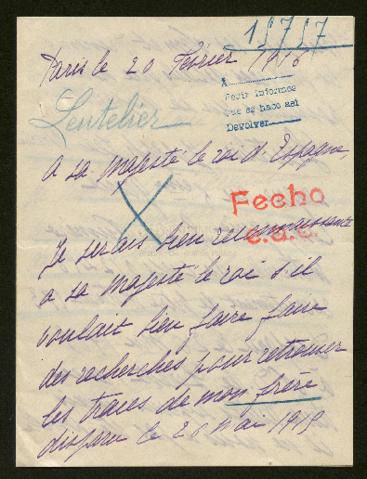 15757
Paris le 20 Février 1918
X
Pedir informes
que se haco asi
Devolver
Lentelier
A sa majesté le roi d'Espagne,
X
Fecho
Je serais bien reconnaissante
a sa majesté le roi s'il
voulait bien faire faire
des recherches pour retrouver
les traces de mon frère
disparu le 26 mai